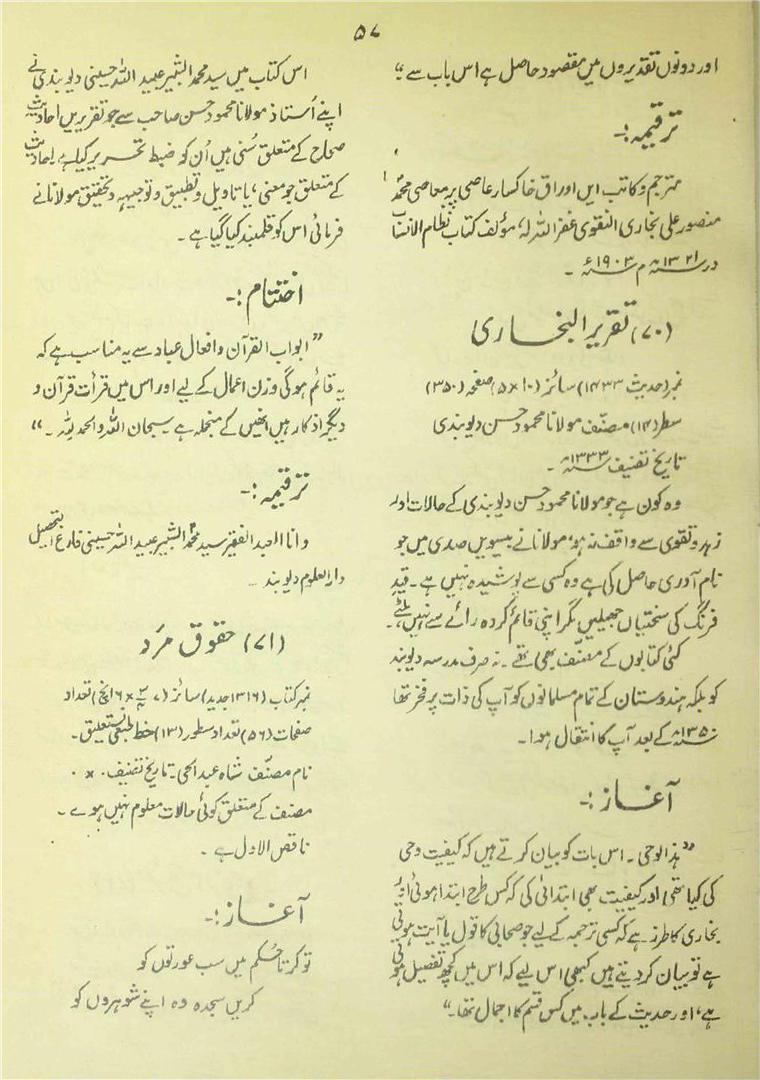 ۵۷
اور دونوں تقدیروں میں مقصود حاصل ہے اس باب سے"
ترقیمہ:-
مترجم و کاتب ایں اوراق خاکسار عاصی پر معاصی محمد
منصور علی بخاری النقوی غفر اللہ لہٗ، مؤلف کتاب نظام الانساب
در ۱۳۲۱ھ م ۱۹۰۳ء ۔
(۷۰) تقریر البخاری
نمبر (حدیث ۱۴۳۳) سائز (۱۰×۵) صفحہ (۳۵۰)
سطر (۱۴) مصنّف مولانا محمود حسن دیوبندی
تاریخ تصنیف ۱۳۳۳ھ ۔
وہ کون ہے جو مولانا محمود حسن دیوبندی کے حالات اور
زہد و تقویٰ سے واقف نہ ہو، مولانا نے بیسویں صدی میں جو
نام آوری حاصل کی ہے وہ کسی سے پوشیدہ نہیں ہے۔ قید
فرنگ کی سختیاں جھیلیں مگر اپنی قائم کردہ رائے سے نہیں ہٹے۔
کئی کتابوں کے مصنّف بھی تھے۔ نہ صرف مدرسہ دیوبند
کو بلکہ ہندوستان کے تمام مسلمانوں کو آپ کی ذات پر فخر تھا
۱۳۵۰ھ کے بعد آپ کا انتقال ہوا۔
آغاز:-
"ہذا لوحی۔ اس بات کو بیان کرتے ہیں کہ کیفیت وحی
کی کیا تھی اور کیفیت بھی ابتدائی کی کہ کس طرح ابتدا ہوئی اور
بخاری کا طرز ہے کہ کسی ترجمہ کے لیے جو صحابی کا قول یا آیت ہوتی
ہے تو بیان کر دیتے ہیں کبھی اس لیے کہ اس میں کچھ تفصیل ہوتی
ہے، اور حدیث کے باب میں کس قسم کا اجمال تھا۔"
اس کتاب میں سید محمد البشیر عبید اللہ حسینی دیوبندی نے
اپنے اُستاذ مولانا محمود حسن صاحب سے جو تقریریں احادیث
صحاح کے متعلق سُنی ہیں اُن کو ضبط تحریر کیا ہے احادیث
کے متعلق جو معنی، یا تاویل و تطبیق و توجیہہ و تحقیق مولانا نے
فرمائی اس کو قلمبند کیا گیا ہے۔
اختتام:-
"ابواب القرآن و افعال عباد سے یہ مناسب ہے کہ
یہ قائم ہو گی وزن اعمال کے لیے اور اس میں قرأت قرآن و
دیگر اذکار ہیں انھیں کے منجملہ ہے سبحان اللہ والحمد للہ ۔"
ترقیمہ:-
وانا العبد الفقیر سید محمد البشیر عبید اللہ حسینی فارغ التحصیل
دار العلوم دیوبند ...
(۷۱) حقوق مرد
نمبر کتاب (۱۳۱۶ جدید) سائز ( × ۶ انچ) تعداد
صفحات (۵۶) تعداد سطور (۱۳) خط نستعلیق۔
نام مصنّف شاہ عبدالحی۔ تاریخ تصنیف ۰ × ۰
مصنف کے متعلق کوئی حالات معلوم نہیں ہوے ۔
ناقص الاول ہے ۔
آغاز:-
تو کرتا حکم میں سب عورتوں کو
کریں سجدہ وہ اپنے شوہروں کو